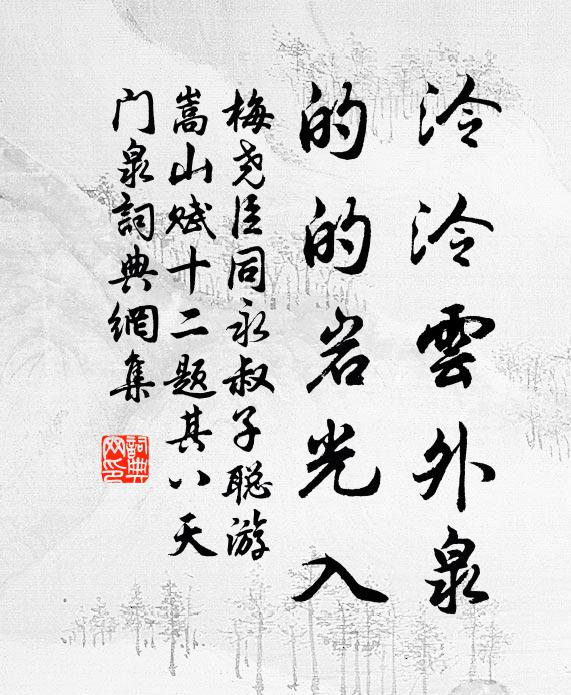 泠泠雲外泉
的的岩光入
梅尧臣同永叔子聪游
嵩山赋十二题其八天
门泉詞典網集
詞典
网印